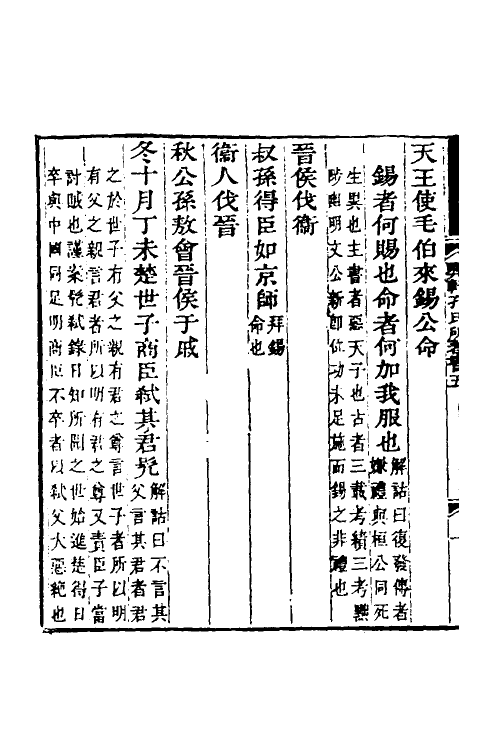 天王使毛伯來錫公命
錫者何賜也命者何加我服也
解詁曰復發傳者
嫌禮與桓公同死
生異也主書者惡天子也古者三載考績三考黜
陟幽明文公新即位功未足施而錫之非禮也
晉侯伐衞
叔孫得臣如京師
拜錫
命也
衞人伐晉
秋公孫敖會晉侯于戚
冬十月丁未楚世子商臣弒其君髡
解詁曰不言其
父言其君者君
之於世子有父之親有君之尊言世子者所以明
有父之親言君者所以明有君之尊又責臣子當
討賊也謹案髡弒錄日知所聞之世始進楚得日
卒與中國同足明商臣不卒者以弒父大惡絶也